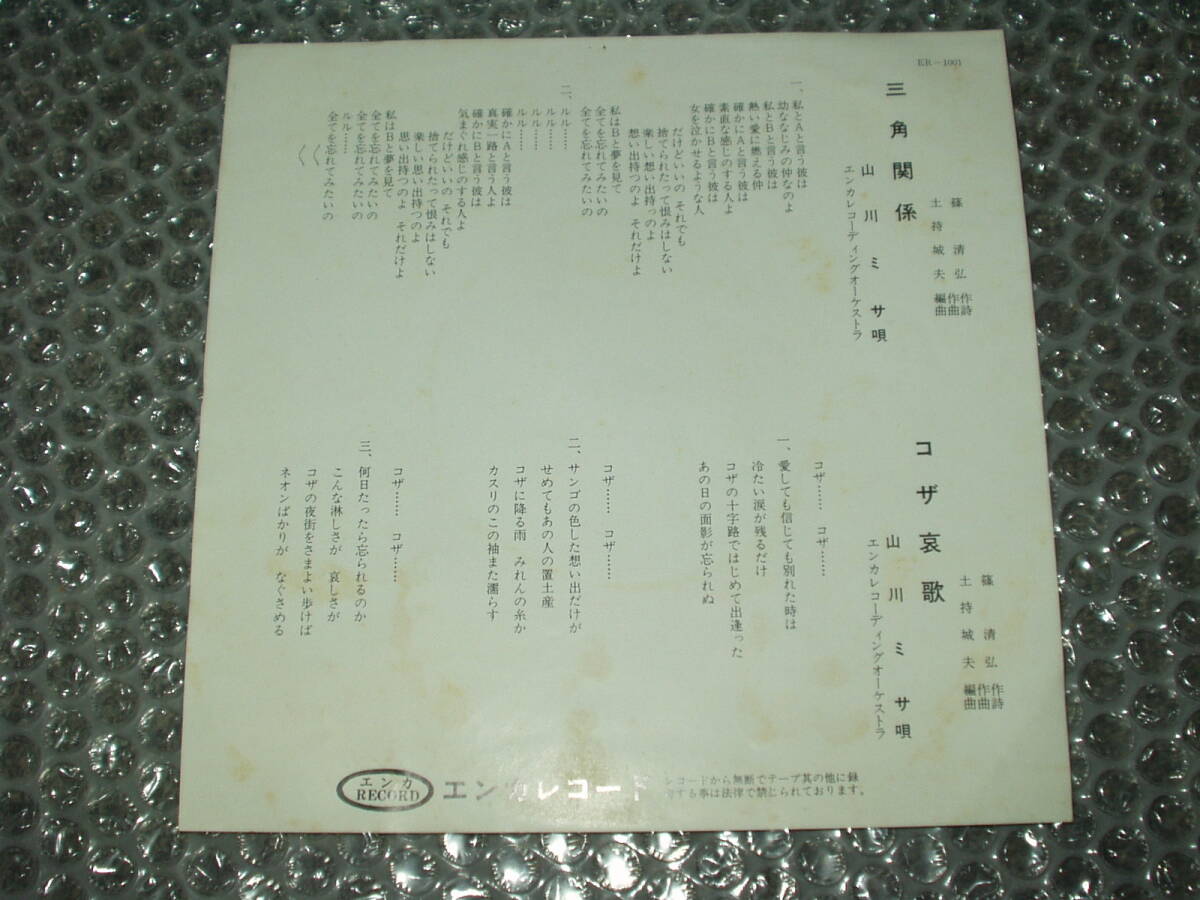 ER-1001
三角関係
篠 清弘 作詩
作曲
土持城夫 編曲
山川ミサ 唄
エンカレコーディングオーケストラ
一、私とAと言う彼は
幼ななじみの仲なのよ
私とBと言う彼は
熱い愛に燃える仲
確かにAと言う彼は
素直な感じのする人よ
確かにBと言う彼は
女を泣かせるような人
だけどいいの それでも
捨てられたって恨みはしない
楽しい想い出持っのよ
想い出持つのよ それだけよ
私はBと夢を見て
全てを忘れてみたいの
二、ルル……
ルル……
ルル……
ルル……
確かにAと言う彼は
真実一路と言う人よ
確かにBと言う彼は
気まぐれ感じのする人よ
だけどいいの それでも
捨てられたって恨みはしない
楽しい思い出持つのよ
思い出持つのよ それだけよ
私はBと夢を見て
全てを忘れてみたいの
全てを忘れてみたいの
ルル……
全てを忘れてみたいの
コザ哀歌
篠 清弘 作詩
作曲
土持城夫 編曲
山川ミサ 唄
エンカレコーディングオーケストラ
コザ…… コザ……
一、愛しても信じても別れた時は
冷たい涙が残るだけ
コザの十字路ではじめて出逢った
あの日の面影が忘られぬ
コザ…… コザ……
二、サンゴの色した想い出だけが
せめてもあの人の置土産
コザに降る雨 みれんの糸か
カスリのこの袖また濡らす
コザ…… コザ……
三、何日たったら忘られるのか
こんな淋しさが 哀しさが
コザの夜街をさまよい歩けば
ネオンばかりが なぐさめる
エンカ
RECORD
エンカレコード
レコードから無断でテープ其の他に録
する事は法律で禁じられております。